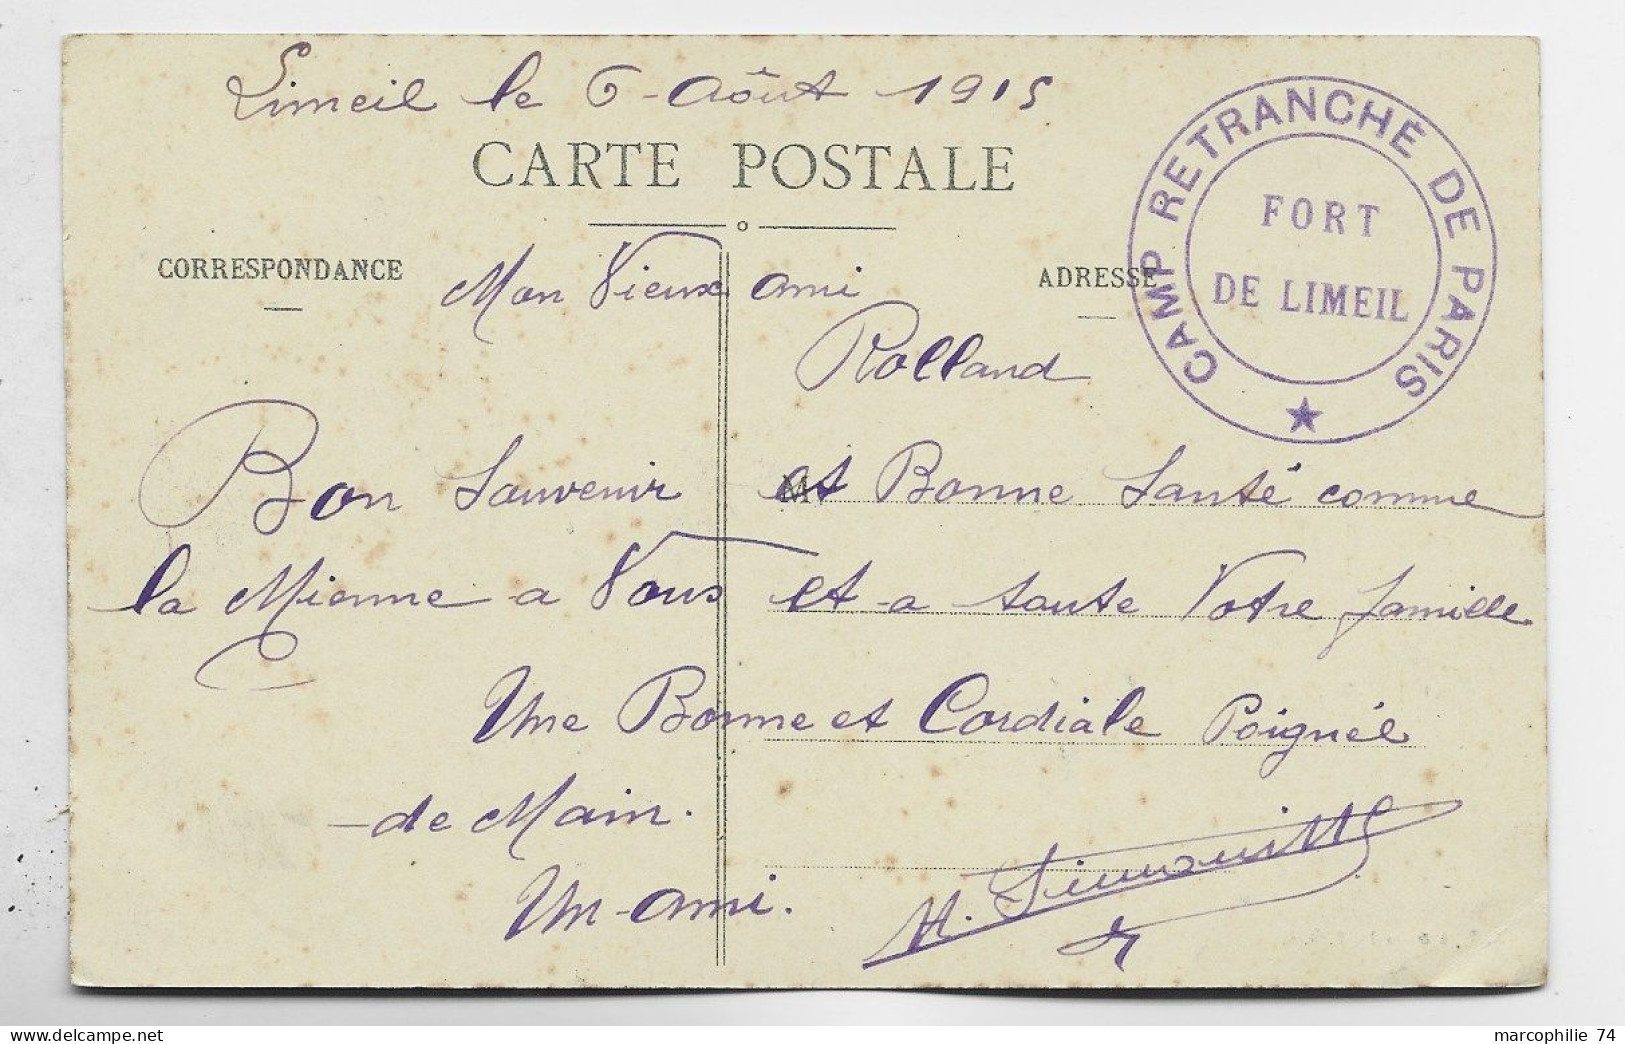 Limeil le 6 - Août 1915
CARTE POSTALE
CAMP RETRANCHÉ DE PARIS
FORT
DE LIMEIL
CORRESPONDANCE
ADRESSE
Mon Vieux ami
Rolland
Bon Souvenir et Bonne Santé comme
M
la Mienne a Vous et a toute Votre famille
Une Bonne et Cordiale Poignée
de Main.
Un ami.
marcophilie 74